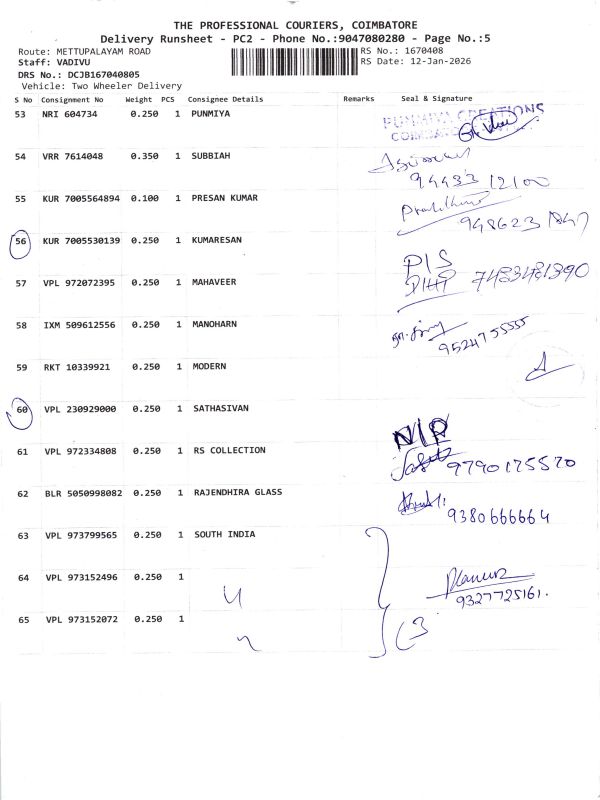 THE PROFESSIONAL COURIERS, COIMBATORE
Delivery Runsheet - PC2 - Phone No.:9047080280 - Page No.:5
Route: METTUPALAYAM ROAD RS No.: 1670408
Staff: VADIVU RS Date: 12-Jan-2026
DRS No.: DCJB167040805
Vehicle: Two Wheeler Delivery
S No Consignment No Weight PCS Consignee Details Remarks Seal & Signature
53 NRI 604734 0.250 1 PUNMIYA PUNMIYA CREATIONS
54 VRR 7614048 0.350 1 SUBBIAH
94433 12100
55 KUR 7005564894 0.100 1 PRESAN KUMAR
948623 1847
56 KUR 7005530139 0.250 1 KUMARESAN
P/S
57 VPL 972072395 0.250 1 MAHAVEER
58 IXM 509612556 0.250 1 MANOHARN
9524755555
59 RKT 10339921 0.250 1 MODERN
60 VPL 230929000 0.250 1 SATHASIVAN
N/P
61 VPL 972334808 0.250 1 RS COLLECTION 9790175570
62 BLR 5050998082 0.250 1 RAJENDHIRA GLASS
9380666664
63 VPL 973799565 0.250 1 SOUTH INDIA
64 VPL 973152496 0.250 1
9327725161.
65 VPL 973152072 0.250 1 (3